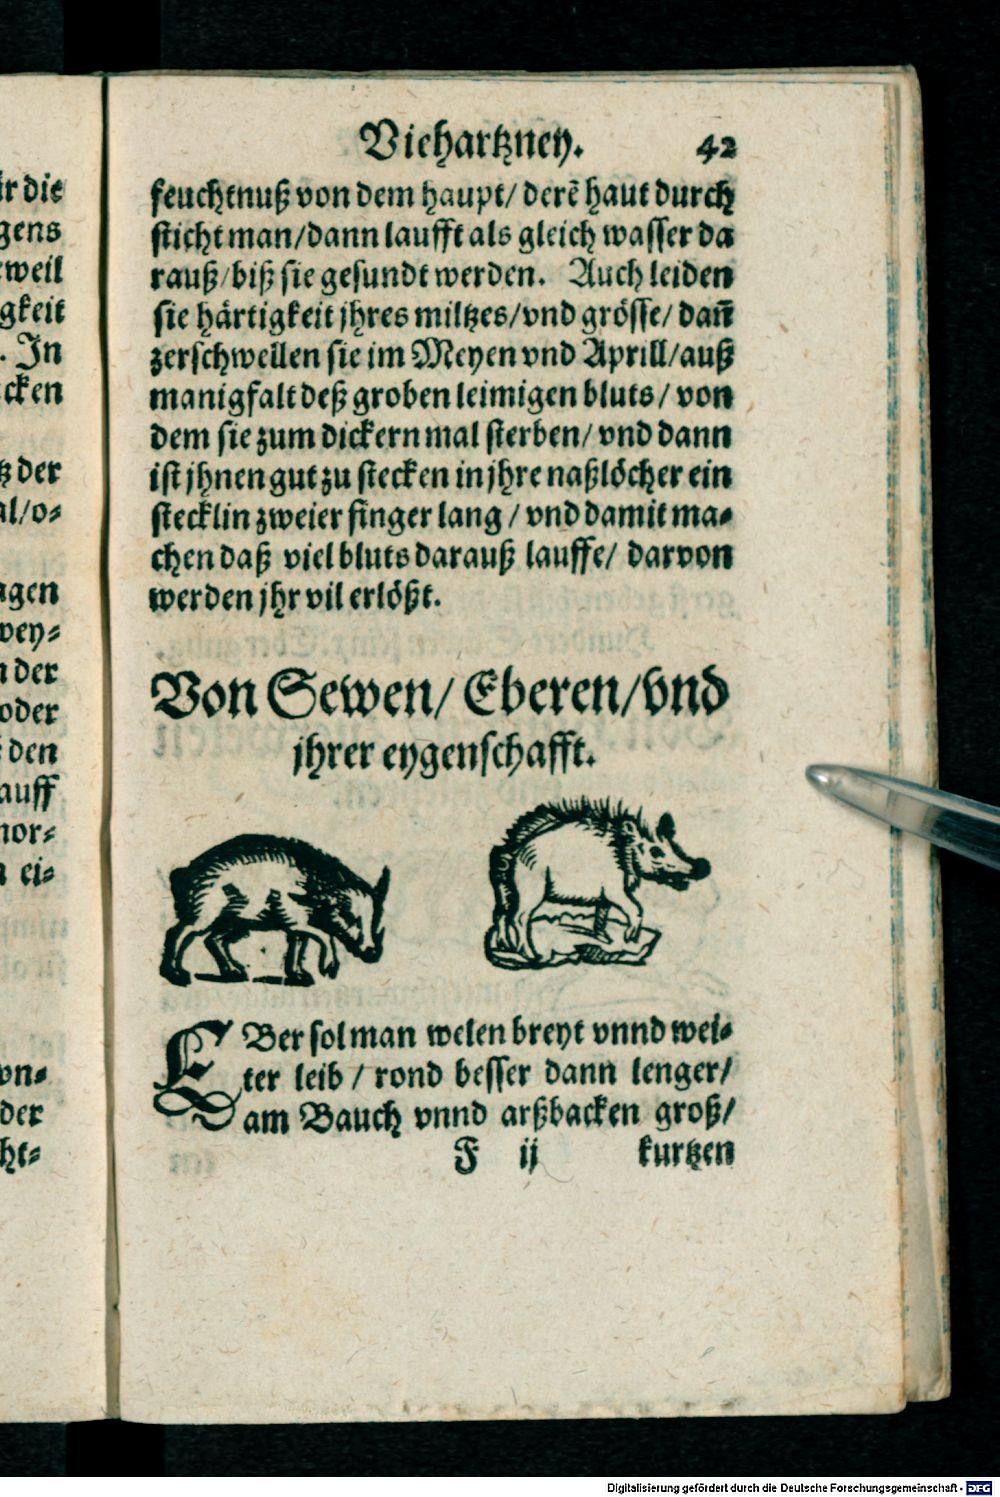 Viehartzney. 42
feuchtnuß von dem haupt/ derē haut durch
sticht man/dann laufft als gleich wasser da
rauß/biß sie gesundt werden. Auch leiden
sie härtigkeit jhres miltzes/vnd grösse/ dañ
zerschwellen sie im Meyen vnd Aprill/auß
manigfalt deß groben leimigen bluts/ von
dem sie zum dickern mal sterben/ vnd dann
ist jhnen gut zu stecken in jhre naßlöcher ein
stecklin zweier finger lang / vnd damit ma-
chen daß viel bluts darauß lauffe/ darvon
werden jhr vil erlößt.
Von Sewen/ Eberen/vnd
jhrer eygenschafft.
EBer sol man welen breyt vnnd wei-
ter leib / rond besser dann lenger/
am Bauch vnnd arßbacken groß/
F ij kurtzen
Digitalisierung gefördert durch die Deutsche Forschungsgemeinschaft - DFG